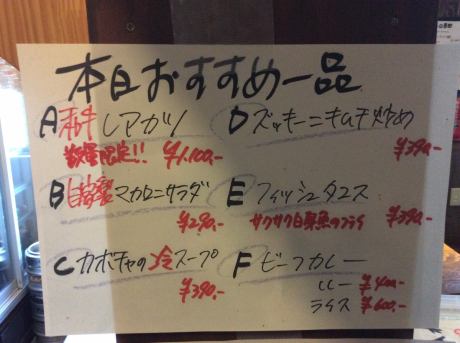 本日おすすめ一品
A 和牛レアカツ
数量限定!! ¥1,100.-
B 自家製マカロニサラダ
¥290.-
C カボチャの冷スープ
¥390.-
D ズッキーニキムチ炒め
¥390.-
E フィッシュタコス
サクサク白身魚のフライ ¥390.-
F ビーフカレー
ルー ¥400.-
ライス ¥600.-